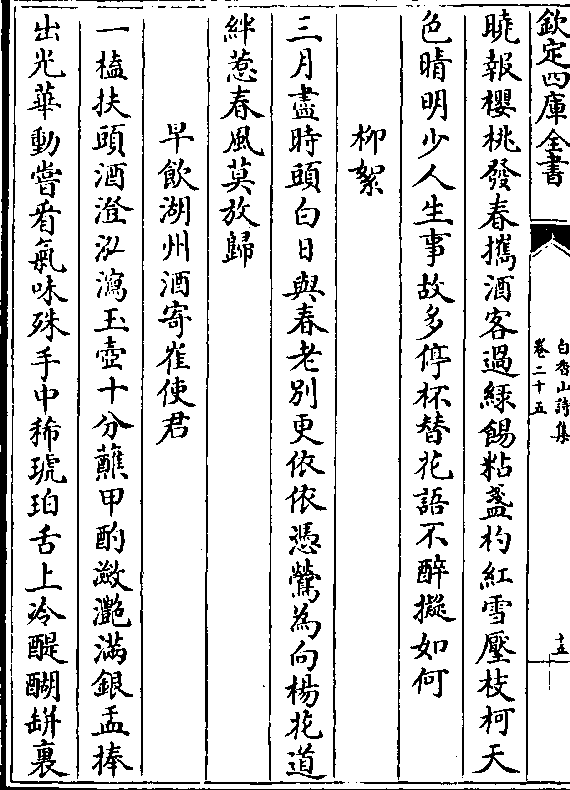 欽定四庫全書
白香山詩集
卷二十五
十五
曉報櫻桃發春攜酒客過綠餳粘盞杓紅雪壓枝柯天
色晴明少人生事故多停杯替花語不醉擬如何
柳絮
三月盡時頭白日與春老別更依依憑鶯為向楊花道
絆惹春風莫放歸
早飲湖州酒寄崔使君
一榼扶頭酒澄泓瀉玉壺十分蘸甲酌瀲灩滿銀盂捧
出光華動嘗看氣味殊手中稀琥珀舌上冷醍醐缾裏